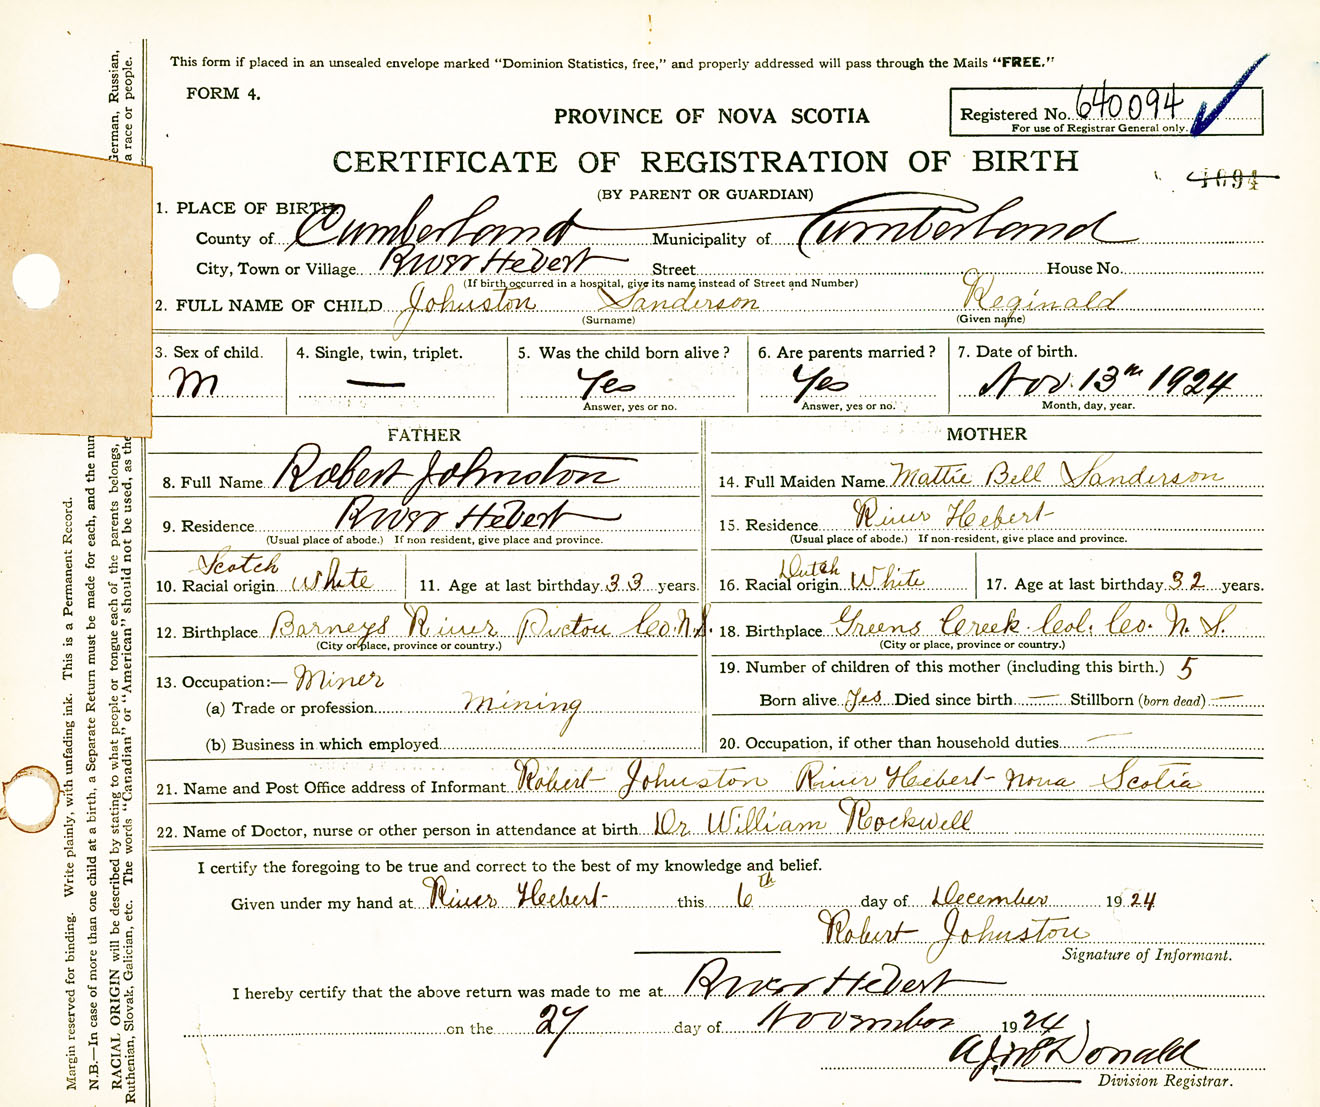 This form if placed in an unsealed envelope marked "Dominion Statistics, free," and properly addressed will pass through the Mails "FREE."
FORM 4.
PROVINCE OF NOVA SCOTIA
Registered No. 640094
For use of Registrar General only.
CERTIFICATE OF REGISTRATION OF BIRTH
4094
(BY PARENT OR GUARDIAN)
1. PLACE OF BIRTH
County of Cumberland Municipality of Cumberland
City, Town or Village River Hebert Street House No.
(If birth occurred in a hospital, give its name instead of Street and Number)
2. FULL NAME OF CHILD Johnston Sanderson Reginald
(Surname) (Given name)
3. Sex of child. 4. Single, twin, triplet. 5. Was the child born alive? 6. Are parents married? 7. Date of birth.
M — Yes Yes Nov. 13th 1924
Answer, yes or no. Answer, yes or no. Month, day, year.
FATHER MOTHER
8. Full Name Robert Johnston 14. Full Maiden Name Mattie Bell Sanderson
9. Residence River Hebert 15. Residence River Hebert
(Usual place of abode.) If non resident, give place and province. (Usual place of abode.) If non-resident, give place and province.
Scotch Dutch
10. Racial origin White 11. Age at last birthday 33 years. 16. Racial origin White 17. Age at last birthday 32 years.
12. Birthplace Barneys River Pictou Co. N.S. 18. Birthplace Greens Creek Col. Co. N. S.
(City or place, province or country.) (City or place, province or country.)
13. Occupation:— Miner 19. Number of children of this mother (including this birth.) 5
(a) Trade or profession Mining Born alive Yes Died since birth — Stillborn (born dead) —
(b) Business in which employed 20. Occupation, if other than household duties —
21. Name and Post Office address of Informant Robert Johnston River Hebert Nova Scotia
22. Name of Doctor, nurse or other person in attendance at birth Dr William Rockwell
I certify the foregoing to be true and correct to the best of my knowledge and belief.
Given under my hand at River Hebert this 6th day of December 1924
Robert Johnston
Signature of Informant.
I hereby certify that the above return was made to me at River Hebert
on the 27 day of November 1924
A J McDonald
Division Registrar.
Margin reserved for binding. Write plainly, with unfading ink. This is a Permanent Record.
N.B.—In case of more than one child at a birth, a Separate Return must be made for each, and the num
RACIAL ORIGIN will be described by stating to what people or tongue each of the parents belongs, German, Russian,
Ruthenian, Slovak, Galician, etc. The words "Canadian" or "American" should not be used, as the a race or people.